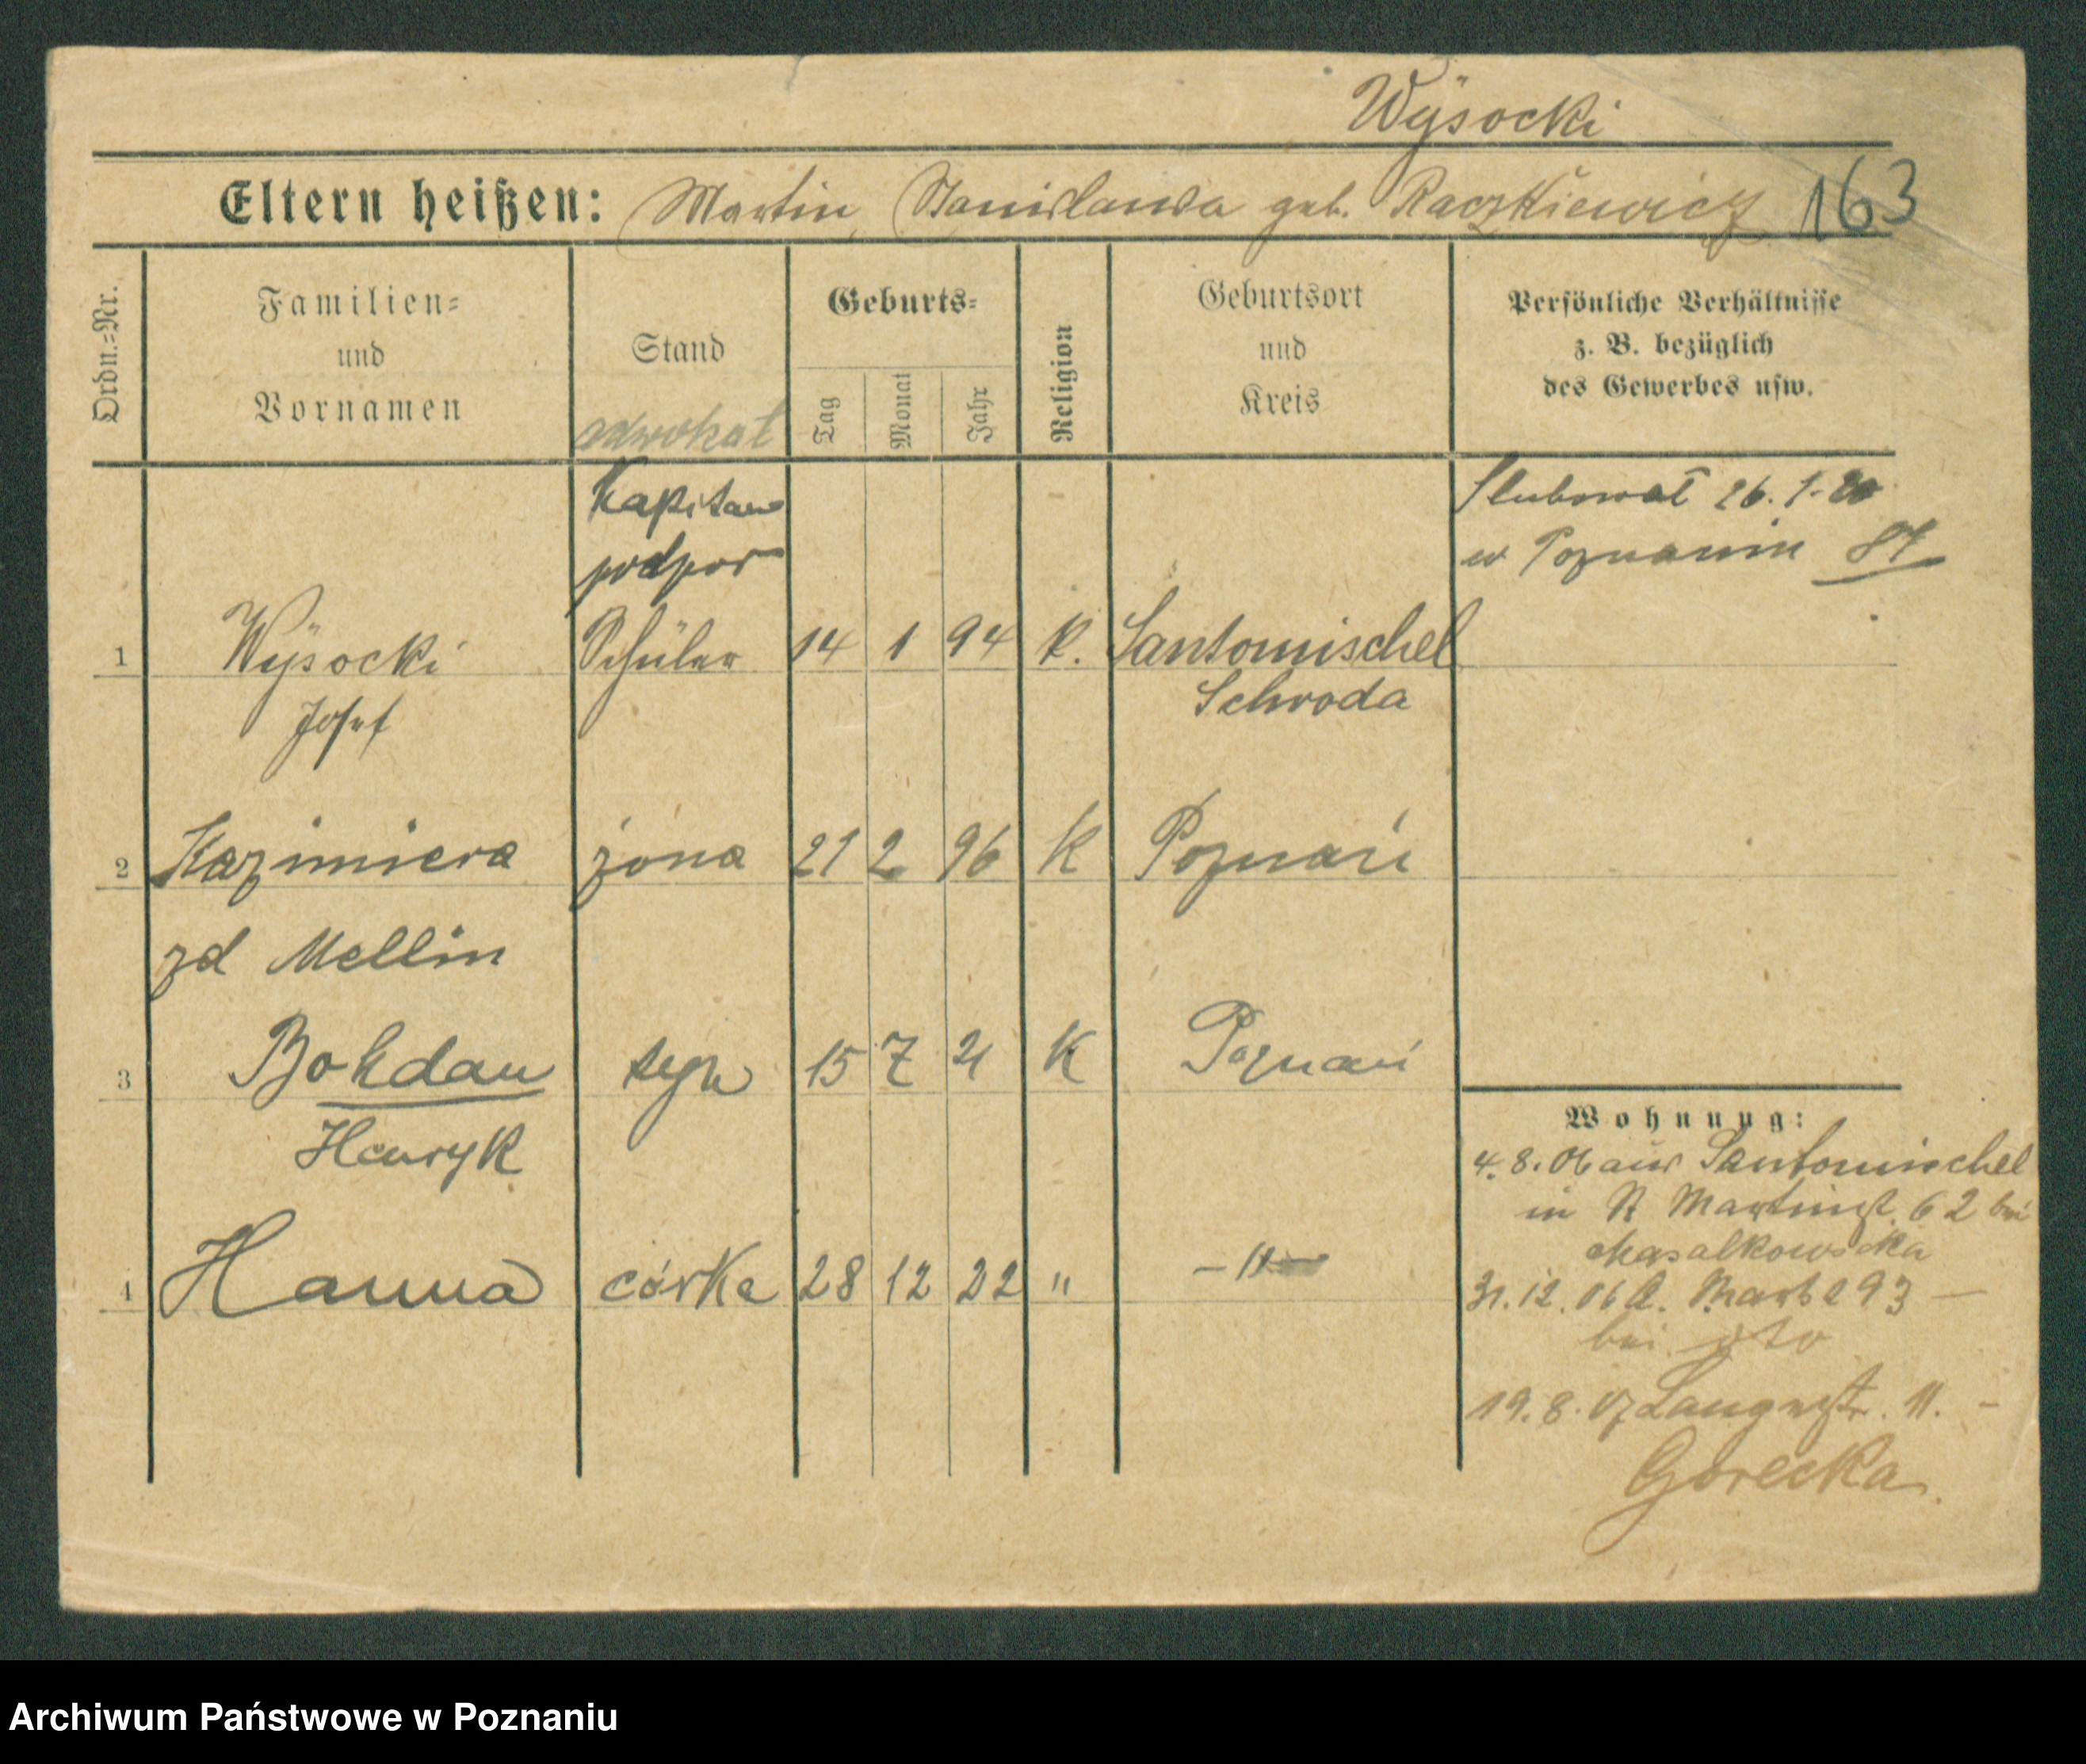 Wÿsocki
Eltern heißen: Martin, Stanislawa geb. Raczkiewicz 163
Ordn.=Nr.
Familien=
und
Vornamen
Stand
adwokat
Geburts=
Tag
Monat
Jahr
Religion
Geburtsort
und
Kreis
Persönliche Verhältnisse
z. B. bezüglich
des Gewerbes usw.
Kapitan
podpor
Slubował 26. 1. 20
w Poznaniu
1 Wÿsocki Schüler 14 1 94 k. Santomischel
Josef Schroda
2 Kazimiera żona 21 2 96 K Poznań
zd Mellin
3 Bohdan syn 15 7 21 K Poznań
Henryk
4 Hanna córka 28 12 22 " - " -
Wohnung:
4. 8. 06 aus Santomischel
in St Martinst. 62 bei
Masalkowska
31. 12. 06 A. Markt 93 -
bei dto
19. 8. 07 Langestr. 11. -
Gorecka
Archiwum Państwowe w Poznaniu